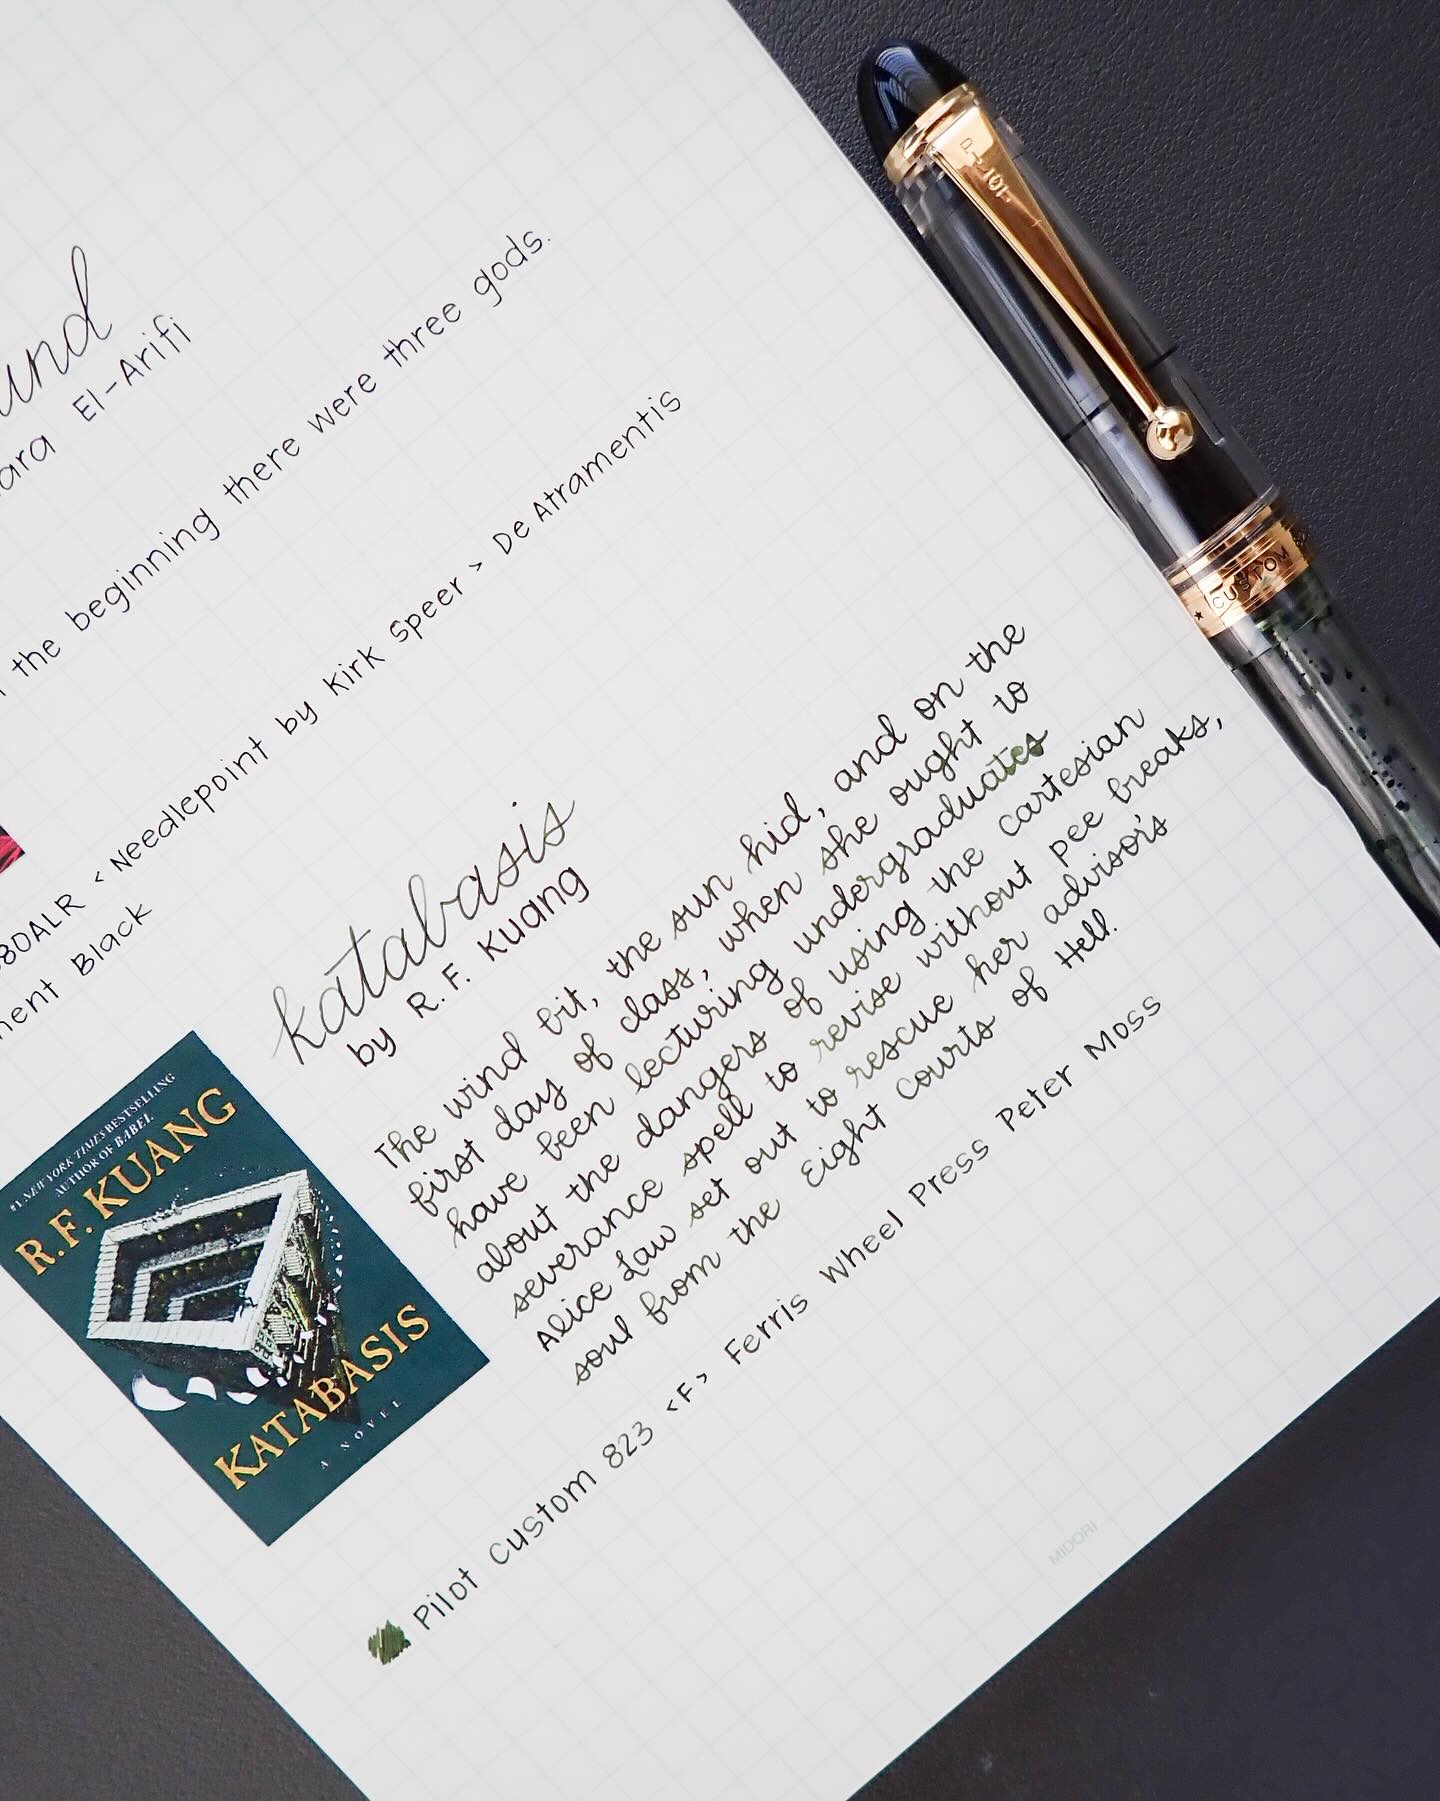 El-Arifi
the beginning there were three gods.
<Needlepoint by Kirk Speer> De Atramentis
Black
katabasis
by R. F. Kuang
The wind bit, the sun hid, and on the
first day of class, when she ought to
have been lecturing undergraduates
about the dangers of using the cartesian
severance spell to revise without pee breaks,
Alice Law set out to rescue her advisor's
soul from the Eight Courts of Hell.
Pilot Custom 823 <F> Ferris Wheel Press Peter Moss
#1 NEW YORK TIMES BESTSELLING
AUTHOR OF BABEL
R.F. KUANG
KATABASIS
A NOVEL
MIDORI
PILOT
★ CUSTOM